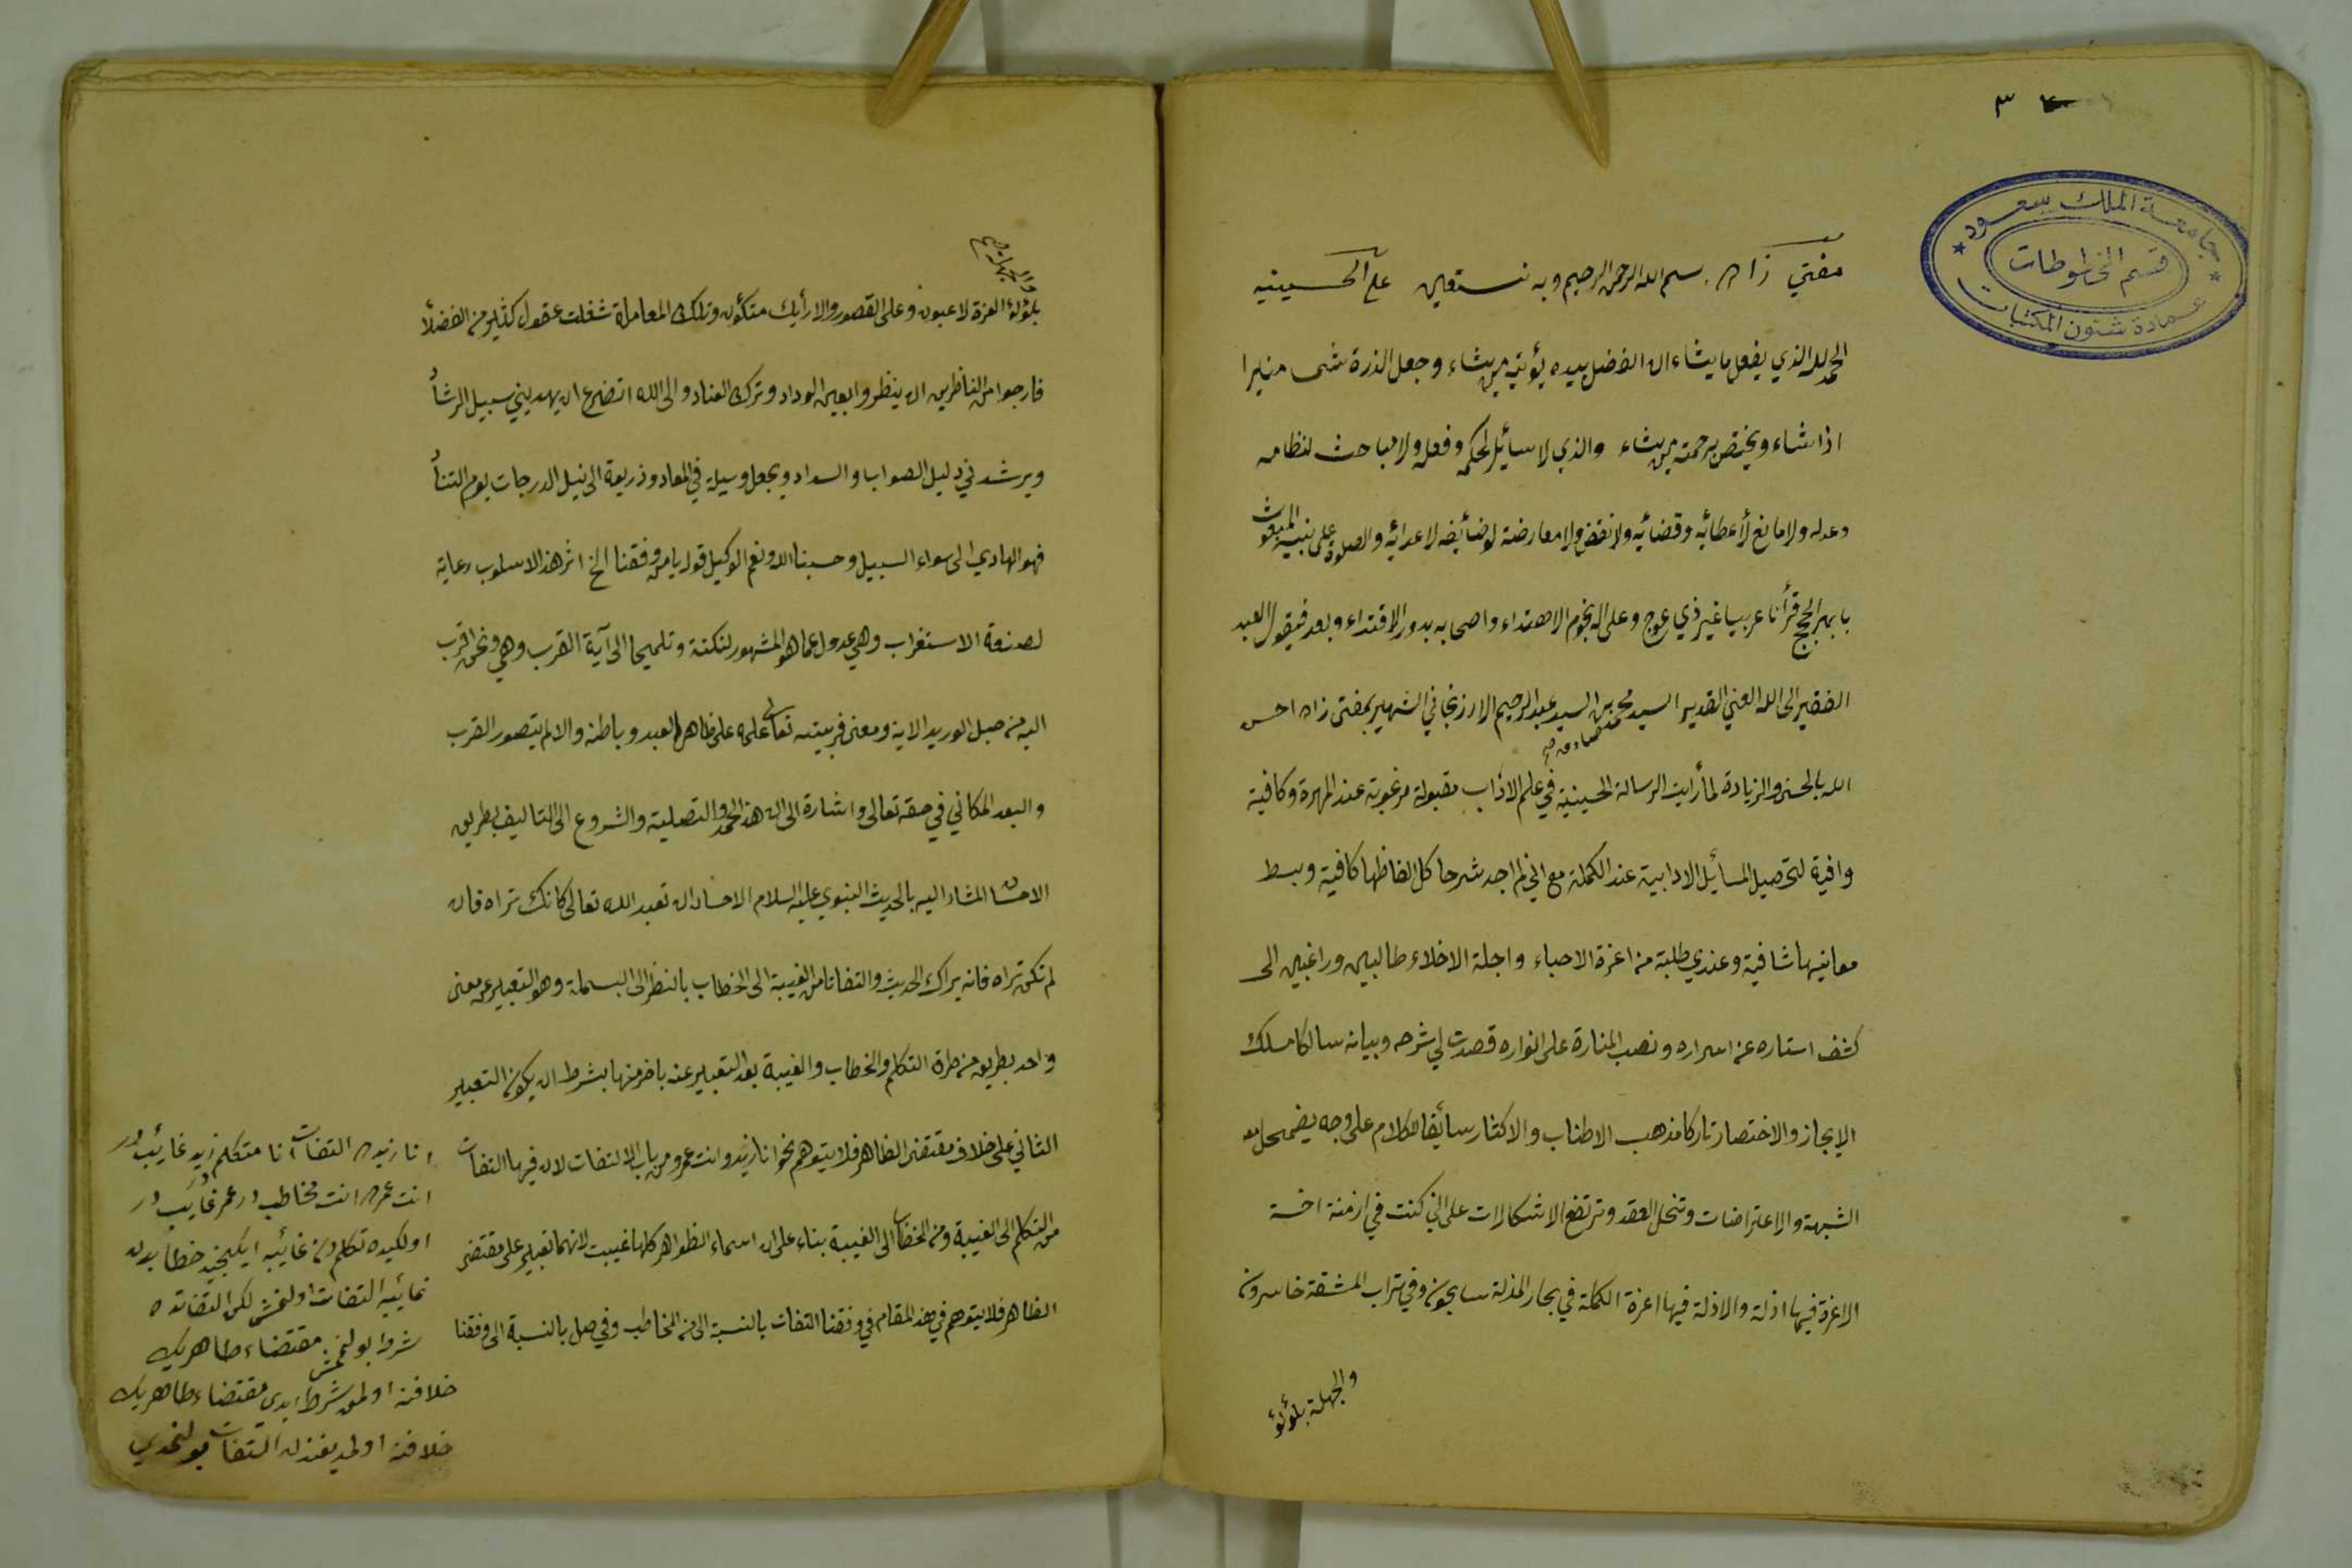 ٣
جامعة الملك سعود
قسم المخطوطات
عمادة شئون المكتبات
مفتي زاده بسم الله الرحمن الرحيم وبه نستعين على الحسينيه
الحمد لله الذي يفعل ما يشاء ان الفضل بيده يؤتيه من يشاء وجعل الذرة شمسا منيرا
اذا شاء ويختص برحمته من يشاء والذي لا سائل لحكمه وفعله ولا مباحث لنظامه
وعدله ولا مانع لأعطائه وقضائه ولا نقض ولا معارضة لوضائفه لاعدائه والصلوة على نبيه المبعوث
بابهر الحجج قرأنا عربيا غير ذي عوج وعلى اله نجوم الاهتداء واصحابه بدور الاقتداء وبعد فيقول العبد
الفقير الى الله الغني القدير السيد محمد صادق بن السيد عبد الرحيم الارزنجاني الشهير بمفتى زاده احسن
الله بالحسنى والزيادة لما رأيت الرسالة الحسينية في علم الاداب مقبولة مرغوبة عند المهرة وكافية
وافية لتحصيل المسائل الادابية عند الكملة مع اني لم اجد شرحا كل الفاظها كافية وبسط
معانيها شافية وعندي طلبة من اعزة الاحباء واجلة الاخلاء طالبين وراغبين الى
كشف استاره عن اسراره ونصب المنارة على انواره قصدت لي شرحه وبيانه سالكا مسلك
الايجاز والاختصار تاركا مذهب الاطناب والاكثار سائقا للكلام على وجه يضمحل به
الشبهة والاعتراضات وتنحل العقد وترتفع الاشكالات على اني كنت في ازمنة اخسة
الاعزة فيها اذلة والاذلة فيها اعزة الكملة في بحار المذلة سابحون وفي تراب المشقة خاسرون
والجهلة بلؤلؤ
والجهلة
بلؤلؤ العزة لاعبون وعلى القصور والارأيك متكؤن وتلك المعاملة شغلت عقول كثير من الفضلأ
فارجوا من الناظرين ان ينظروا بعين الوداد وترك العناد والى الله اتضرع ان يهديني سبيل الرشأ
ويرشدني دليل الصواب والسداد ويجعل وسيلة في المعاد وذريعة الى نيل الدرجات يوم التنأ
فهو الهادي الى سواء السبيل وحسبنا الله ونعم الوكيل قوله يا من وفقنا الخ اثر هذا الاسلوب رعاية
لصنعة الاستغراب وهي عدول عما هو المشهور لنكتة وتلميحا الى آية القرب وهي ونحن اقرب
اليه من حبل الوريد الاية ومعنى قربيته تعالى علمه على ظاهر العبد وباطنه والا لم يتصور القرب
والبعد المكاني في حقه تعالى واشارة الى ان هذا الحمد والتصلية والشروع الى التاليف بطريق
الاحسان المشار اليه بالحديث النبوي عليه السلام الاحسان ان تعبد الله تعالى كانك تراه فان
لم تكن تراه فانه يراك الحديث والتفاتا من الغيبة الى الخطاب بالنظر الى البسملة وهو التعبير عن معنى
واحد بطريق من طرق التكلم والخطاب والغيبة بعد التعبير عنه باخر منها بشرط ان يكون التعبير
الثاني على خلاف مقتضى الظاهر فلا يتوهم نحو انا زيد وانت عمرو من باب الالتفات لان فيها التفات
من التكلم الى الغيبة ومن الخطاب الى الغيبة بناء على ان اسماء الظواهر كلها غيبت لانهما تعبير على مقتضى
الظاهر فلا يتوهم في هذا المقام في وفقنا التفات بالنسبة الى من المخاطب وفي صل بالنسبة الى وفقنا
انا زيده التفات انا متكلم زيد غائب در
انت عمره انت مخاطب در عمر غايب در
اولكيده تكلمدن غائبه ايكنجيده خطابدن
غائبه التفات اولنمش لكن التفاتده
شرط بولنمش مقتضاء ظاهريك
خلافنه اولمق شرط ايدى مقتضاء ظاهريك
خلافنه اولمديغندن التفات بولنمدي